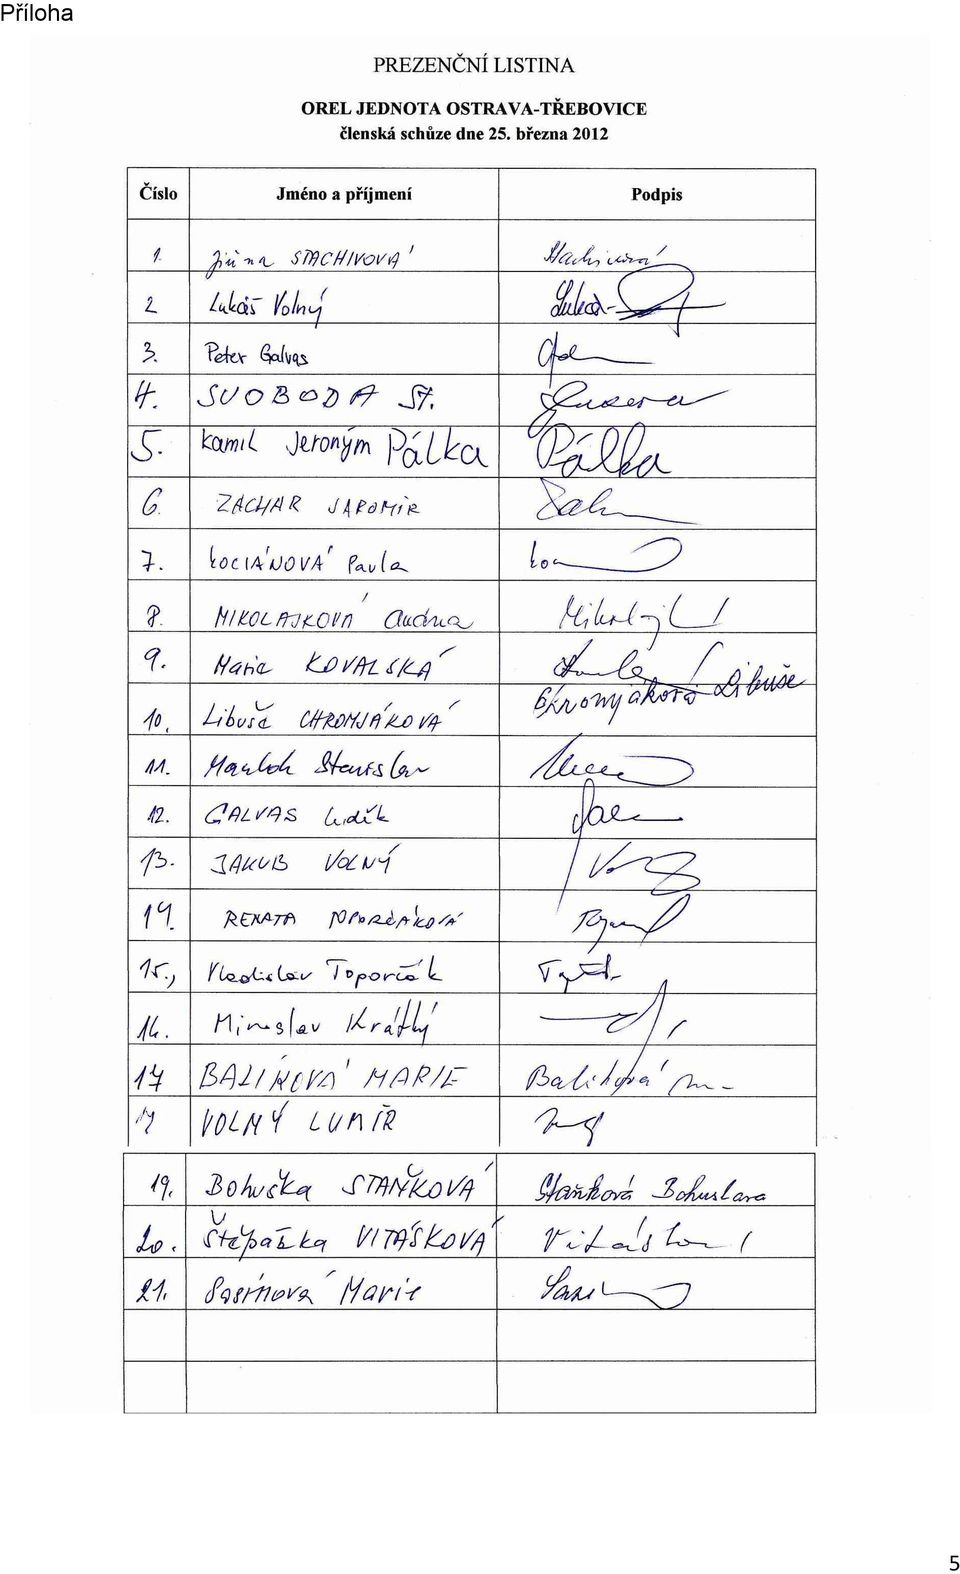 Příloha
PREZENČNÍ LISTINA
OREL JEDNOTA OSTRAVA-TŘEBOVICE
členská schůze dne 25. března 2012
Číslo Jméno a příjmení Podpis
1. Jiřina STACHIVOVÁ
2. Lukáš Volný
3. Peter Galvas
4. SVOBODA ST.
5. Kamil Jeroným Pálka Pálka
6. ZACHAR JAROMÍR
7. KOCIÁNOVÁ Pavla
8. MIKOLAJKOVÁ
9. Marie KOVALSKÁ
10. Libuše CHROMJÁKOVÁ Libuše
11. Stanislav
12. GALVAS Luděk
13. JAKUB VOLNÝ
14. RENATA
15., Vladislav Toporčák
16. Miroslav Krátký
17 BALÍKOVÁ MARIE Balíková
VOLNÝ LUMÍR
19. Bohuška STAŇKOVÁ Staňková Bohuslava
20. Štěpánka VITÁSKOVÁ
21. Sasínová Marie
5